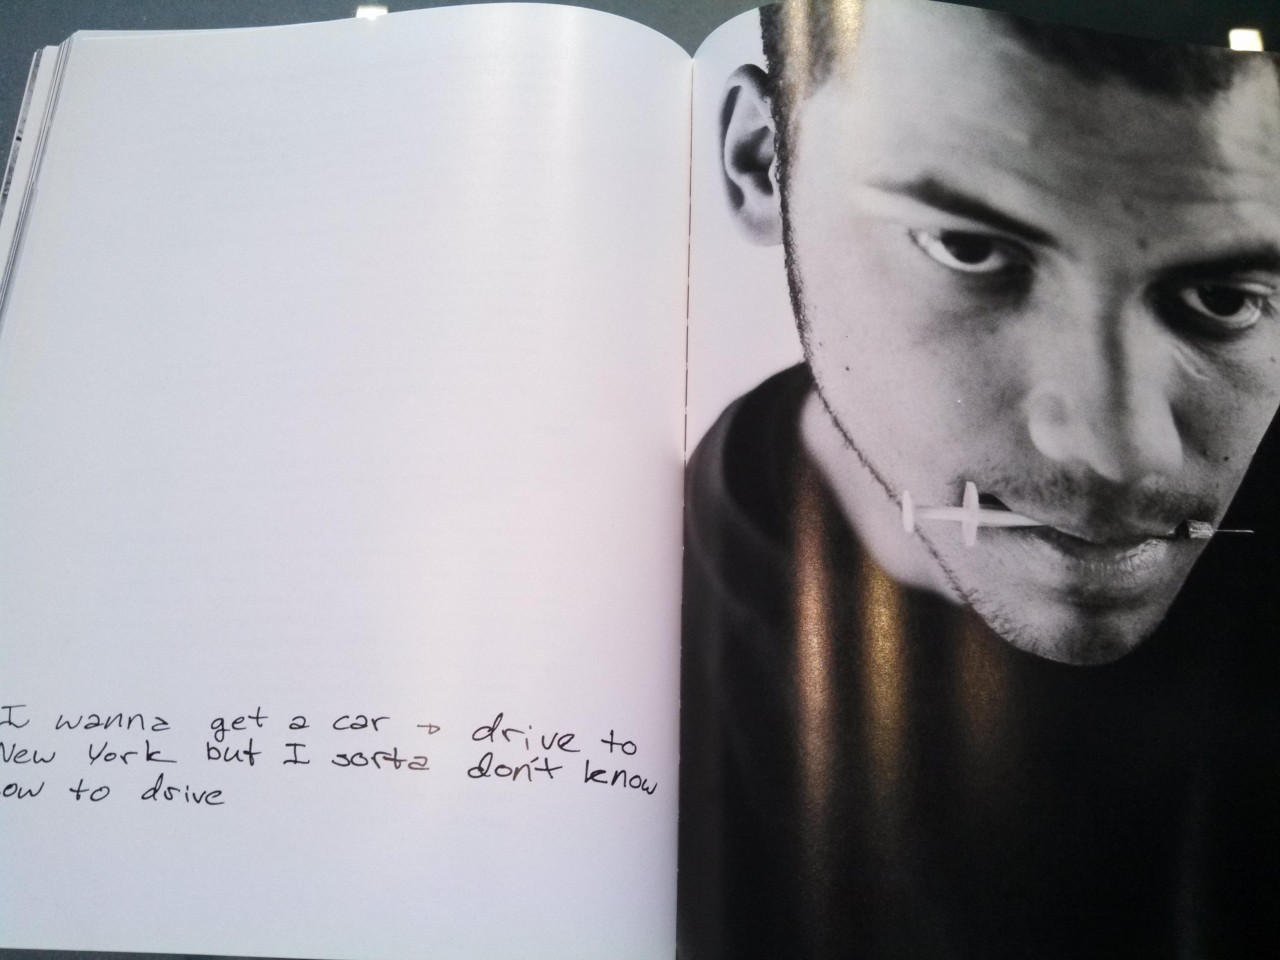 I wanna get a car → drive to
New York but I sorta don't know
ow to drive